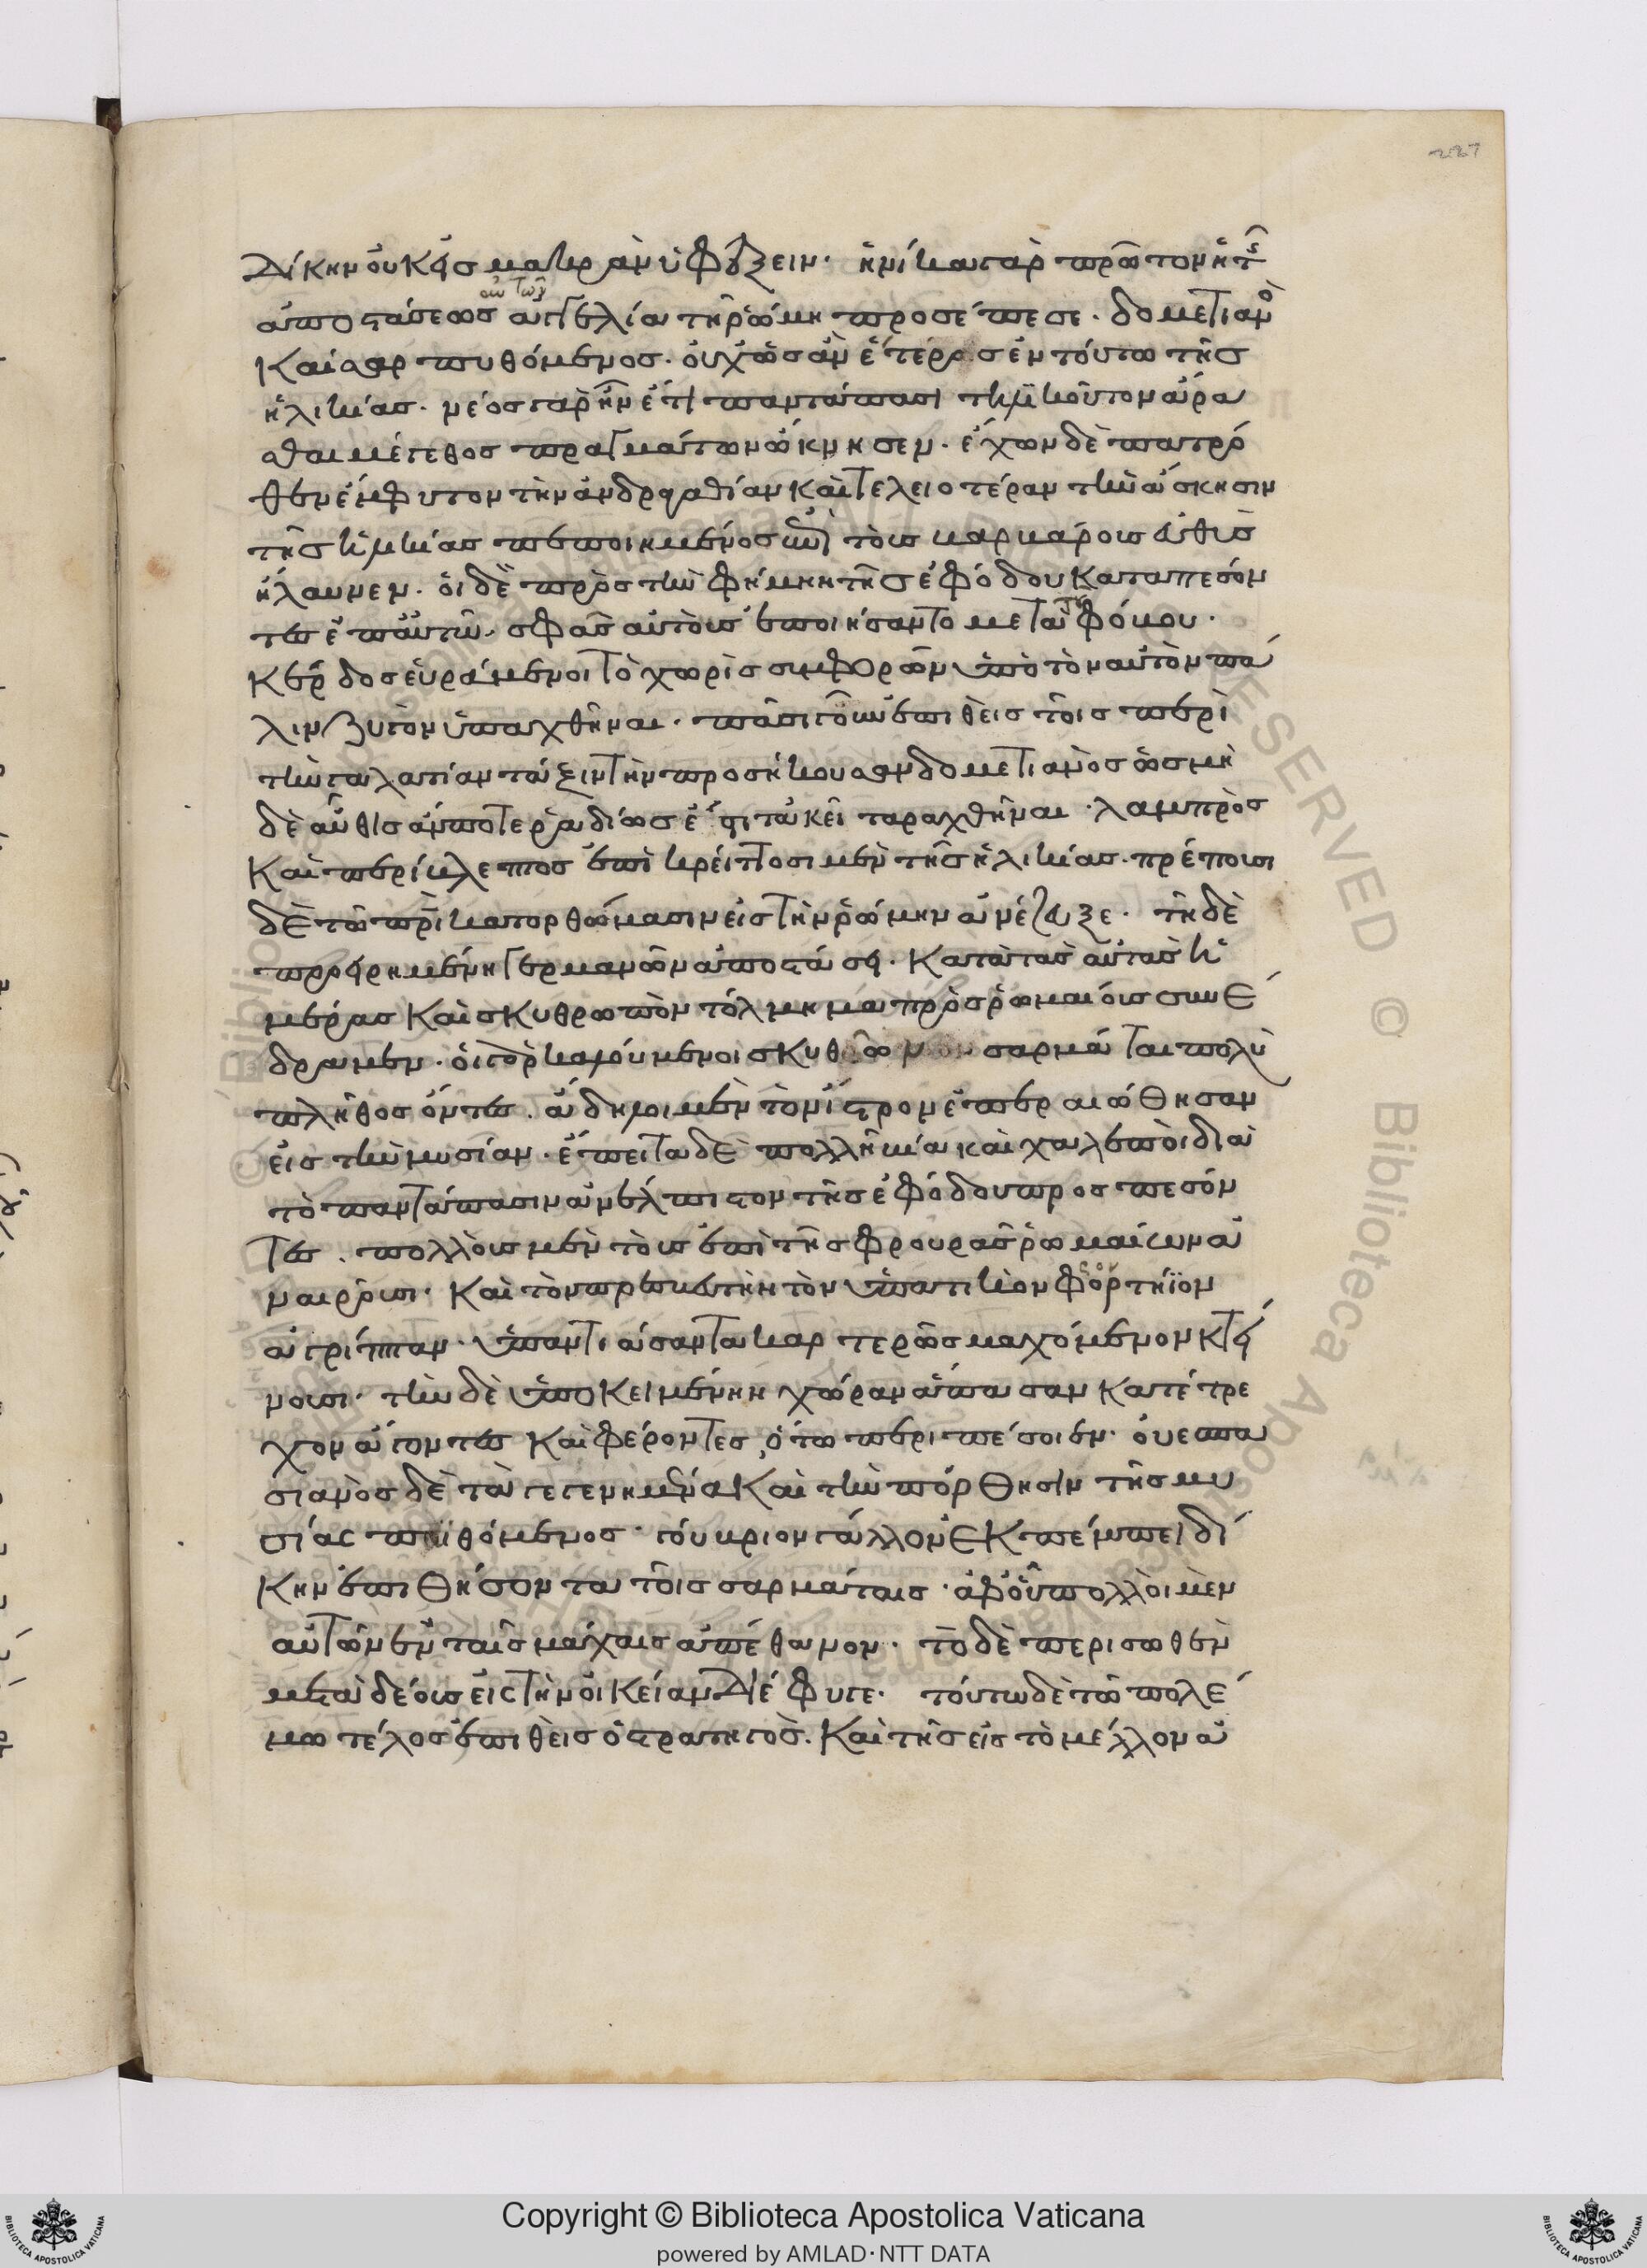 227
δίκην οὐκ εἰς μακρὰν ὑφέξειν. ἡνίκα γὰρ πρῶτον ἡ τῆς
ἀποστάσεως αὐτῶν ἀγγελία τῇ ῥώμῃ προσέπεσε. δομετιανὸς
καῖσαρ πυθόμενος. οὐχ ὡς ἂν ἕτερος ἐν τούτω τῆς
ἡλικίας. νέος γὰρ ἦν ἔτι παντάπασι τηλικοῦτον ἄρα
σθαι μέγεθος πραγμάτων ὤκνησεν. ἔχων δὲ πατρό
θεν ἔμφυτον τὴν ἀνδραγαθίαν καὶ τελειοτέραν τὴν ἄσκησιν
τῆς ἡλικίας πεποιημένος ἐπὶ τοὺς βαρβάρους εὐθὺς
ἤλαυνεν. οἱ δὲ πρὸς τὴν φήμην τῆς ἐφόδου καταπεσόν
τες ἐπ αὐτῶ σφᾶς αὐτοὺς ἐποιήσαντο μετὰ τοῦ φόβου.
κέρδος εὑράμενοι τὸ χωρὶς συμφορῶν ὑπὸ τὸν αὐτὸν πά
λιν ζυγὸν ὑπαχθῆναι. πᾶσιν οὖν ἐπιθεὶς τοῖς περὶ
τὴν γαλατίαν τάξιν τὴν προσήκουσαν δομετιανὸς ὡς μὴ
δὲ αὖθις ἄν ποτε ῥαδίως ἔτι τἀκεῖ ταραχθῆναι. λαμπρὸς
καὶ περίβλεπτος ἐπὶ κρείττοσι μὲν τῆς ἡλικίας. πρέπουσι
δὲ τῶ πρὶ κατορθώμασιν εἰς τὴν ῥώμην ἀνέζευξε. τῇ δὲ
προειρημένῃ γερμανῶν ἀποστάσει. κατὰ τὰς αὐτὰς ἡ
μέρας καὶ σκυθρωπὸν τόλμημα πρὸς ῥωμαίους συνέ
δραμεν. οἱ γὰρ καλούμενοι σκυθῶν σαρμάται πολὺ
πλῆθος ὄντες. ἄδηλοι μὲν τὸν ἴστρον ἐπεραιώθησαν
εἰς τὴν μυσίαν. ἔπειτα δὲ πολλῇ βίᾳ καὶ χαλεποὶ διὰ
τὸ παντάπασιν ἀνέλπιστον τῆς ἐφόδου προσπεσόν
τες. πολλοὺς μὲν τοὺς ἐπὶ τῆς φρουρᾶς ῥωμαίων ἀ
ναιροῦσι. καὶ τὸν πρεσβευτὴν τὸν ὑπατικὸν φορτήϊον
ἀγρίππαν. ὑπαντιάσαντα καρτερῶς μαχόμενον κτεί
νουσι. τὴν δὲ ὑποκειμένην χώραν ἅπασαν κατέτρε
χον ἄγοντες καὶ φέροντες, ὅτω περιπέσοιεν. οὐεσπα
σιανὸς δὲ τὰ γεγενημένα καὶ τὴν πόρθησιν τῆς μυ
σίας πυθόμενος. ῥούβριον γάλλον ἐκπέμπει δί
κην ἐπιθήσοντα τοῖς σαρμάταις. ἀφ οὗ πολλοὶ μὲν
αὐτῶν ἐν ταῖς μάχαις ἀπέθανον. τὸ δὲ περισωθὲν
μετὰ δέους εἰς τὴν οἰκείαν διέφυγε. τούτω δὲ τῶ πολέ
μω τέλος ἐπιθεὶς ὁ στρατηγὸς. καὶ τῆς εἰς τὸ μέλλον ἀ
Copyright © Biblioteca Apostolica Vaticana
powered by AMLAD·NTT DATA